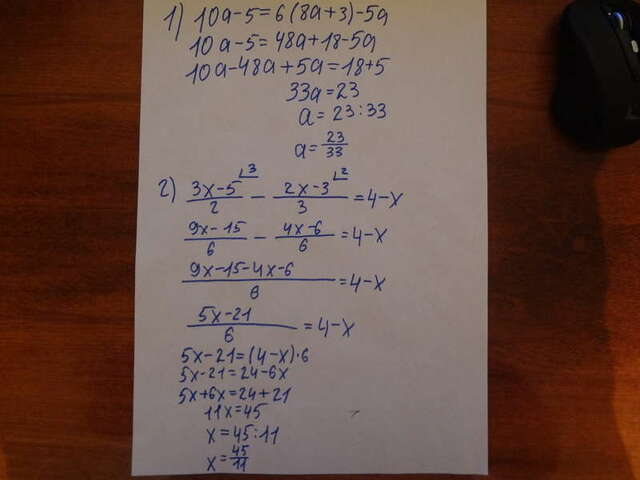 1) 10a-5=6(8a+3)-5a
10a-5=48a+18-5a
10a-48a+5a=18+5
33a=23
a=23:33
a=23/33
2) (3x-5)/2 ⌊3 - (2x-3)/3 ⌊2 =4-x
(9x-15)/6 - (4x-6)/6 =4-x
(9x-15-4x-6)/6 =4-x
(5x-21)/6 =4-x
5x-21=(4-x)·6
5x-21=24-6x
5x+6x=24+21
11x=45
x=45:11
x=45/11